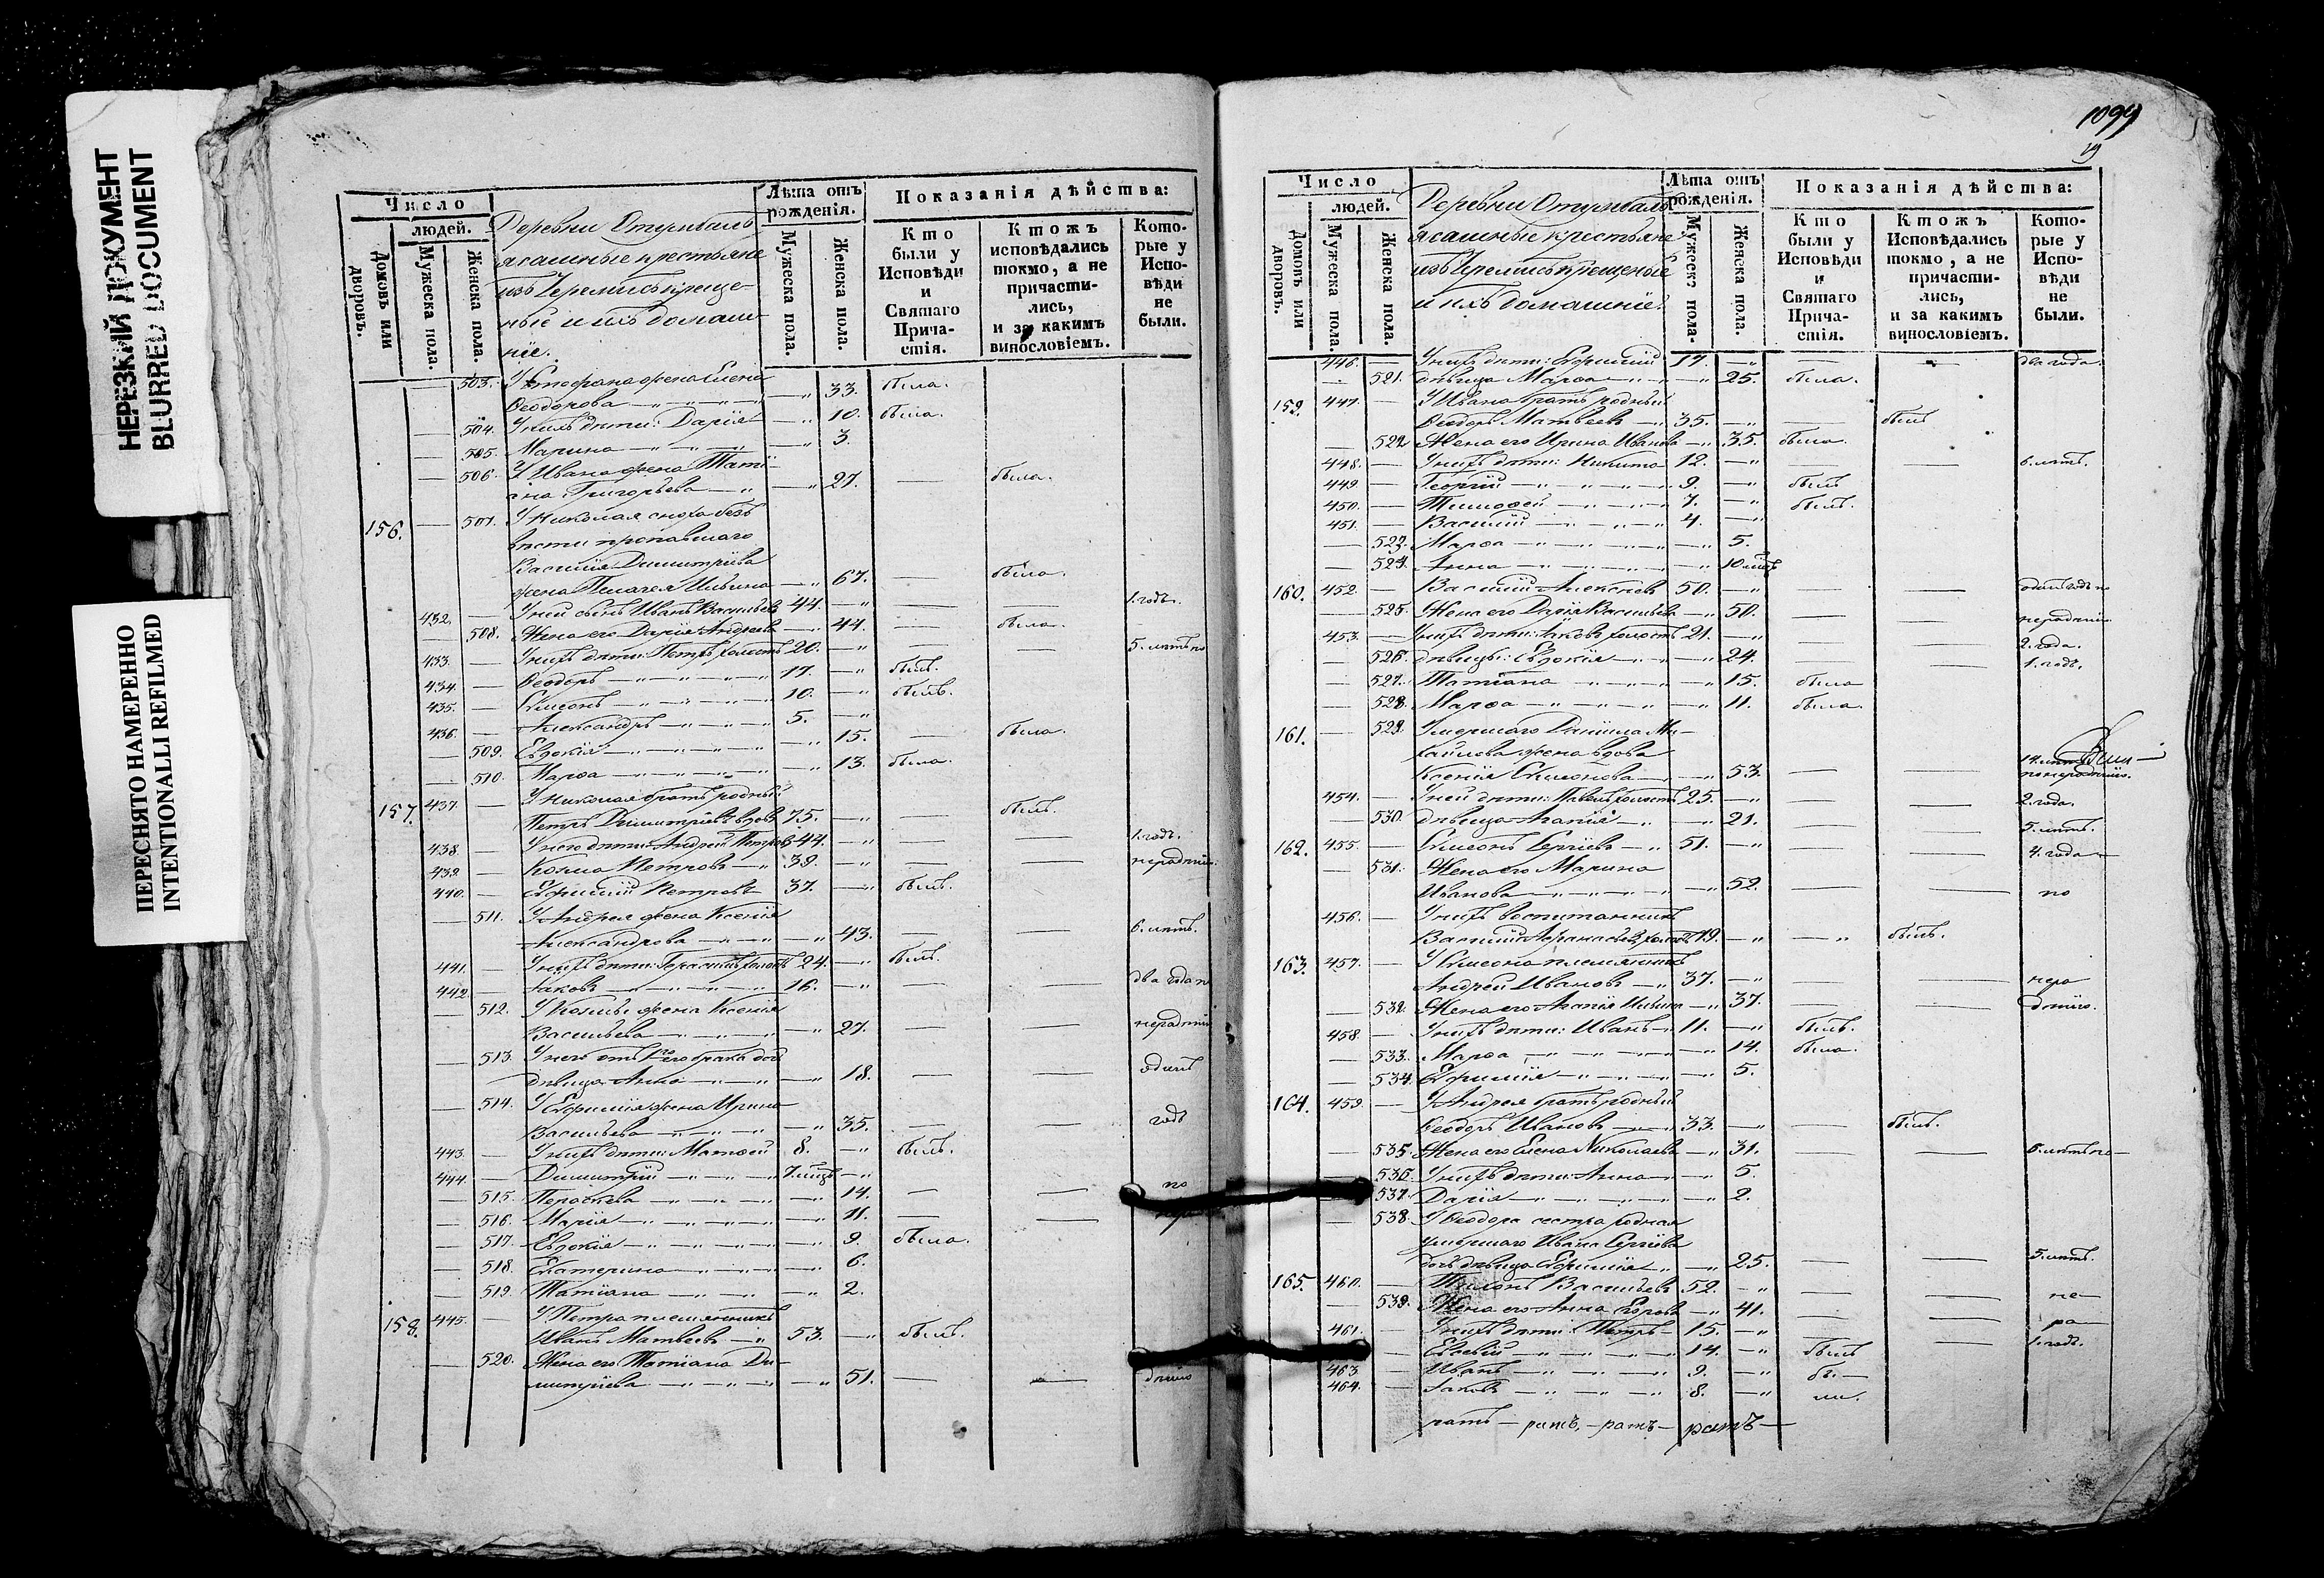 НЕРЕЗКИЙ ДОКУМЕНТ
BLURRED DOCUMENT
ПЕРЕСНЯТО НАМЕРЕННО
INTENTIONALLI REFILMED
Число
людей.
Домовъ или дворовъ.
Мужеска пола.
Женска пола.
Деревни
ясашные крестьяне
изъ Черемисъ креще-
ные и ихъ домаш-
ніе.
Лѣта отъ рожденія.
Мужеска пола.
Женска пола.
Показанія дѣйства:
Кто были у Исповѣди и Святаго Прича-стія.
Ктожъ исповѣдались токмо, а не причасти-лись, и за какимъ винословіемъ.
Кото-рые у Испо-вѣди не были.
503. У Стефана жена Елена
Ѳеодорова 33. была.
504. У нихъ дѣти: Дарія 10. была.
505. Марина 3.
506. У Ивана жена Тати-
ана Григорьева 27. была.
156. 507. У Николая сноха безъ
вѣсти пропавшаго
Василія Димитріева
жена Пелагея Ильина 67. была.
432. У ней сынъ Иванъ Васильевъ 44. 1. годъ.
508. Жена его Дарія Андреева 44. была.
433. У нихъ дѣти: Петръ холостъ 20. 5. лѣтъ по
434. Ѳеодоръ 17. былъ.
435. Симеонъ 10. былъ.
436. Александръ 5.
509. Евдокія 15. была.
510. Марѳа 13. была.
157. 437. У Николая братъ родный
Петръ Димитріевъ вдовъ 75. былъ
438. У него дѣти: Андрей Петровъ 44. 1. годъ.
439. Козма Петровъ 39. нерадѣнію.
440. Евфимій Петровъ 37. былъ.
511. У Андрея жена Ксенія
Александрова 43. 6. лѣтъ.
441. У нихъ дѣти: Герасимъ холостъ 24. былъ.
442. Іаковъ 16. два года п
512. У Козмы жена Ксенія
Васильева 27. нерадѣнію
513. У него отъ 1го брака дочь
дѣвица Анна 18. одинъ
514. У Евфимія жена Ирина
Васильева 35. годъ
443. У нихъ дѣти: Матѳей 8. былъ.
444. Димитрій 7. мцъ
515. 14. по
516. Марія 11.
517. Евдокія 9. была.
518. Екатерина 6.
519. Татіана 2.
158. 445. У Петра племянникъ
Иванъ Матвеевъ 53. былъ.
520. Жена его Татіана Ди-
митріева 51. дѣнію
1099
19
Число
людей.
Домовъ или дворовъ.
Мужеска пола.
Женска пола.
Деревни
ясашные крестьяне
изъ Черемисъ крещеные
и ихъ домашніе.
Лѣта отъ рожденія.
Мужеска пола.
Женска пола.
Показанія дѣйства:
Кто были у Исповѣди и Святаго Прича-стія.
Ктожъ Исповѣдались токмо, а не причасти-лись, и за какимъ винословіемъ.
Кото-рые у Испо-вѣди не были.
446. У нихъ дѣти: Евфимій 17. два года.
521. дѣвица Марѳа 25. была.
159. 447. У Ивана братъ родный
Ѳеодоръ Матвеевъ 35. былъ
522. Жена его Ирина Иванова 35. была.
448. У нихъ дѣти: Никита 12. 6. лѣтъ.
449. Георгій 9. былъ
450. Тимоѳей 7. былъ.
451. Василій 4.
523. Марѳа 5.
524. Анна 10 мцъ
160. 452. Василій Алексѣевъ 50. одинъ годъ п
525. Жена его Дарія Васильева 50. нерадѣнію
453. У нихъ дѣти: Іаковъ холостъ 21. 2. года.
526. дѣвицы: Евдокія 24. 1. годъ.
527. Татіана 15. была
528. Марѳа 11. была.
161. 529. Умершаго Даніила Ми-
хайлова жена вдова
Ксенія Симеонова 53. 14. лѣтъ
по нерадѣнію.
454. У ней дѣти: Павелъ холостъ 25. 2. года.
530. дѣвица Агапія 21. 5. лѣтъ.
162. 455. Симеонъ Сергіевъ 51. 4. года
531. Жена его Марина
Иванова 52. по
456. У нихъ воспитанникъ
Василій Аѳанасьевъ холостъ 19. былъ.
163. 457. У Симеона племянникъ
Андрей Ивановъ 37. нера
532. Жена его Агапія Ильина 37. дѣнію.
458. У нихъ дѣти: Иванъ 11. былъ.
533. Марѳа 14. была.
534. Евфимія 5.
164. 459. У Андрея братъ родный
Ѳеодоръ Ивановъ 33. былъ.
535. Жена его Елена Николаева 31. 6. лѣтъ по
536. У нихъ дѣти: Анна 5.
537. Дарія 2.
538. У Ѳеодора сестра родная
умершаго Ивана Сергіева
дочь дѣвица Евфимія 25. 5. лѣтъ.
165. 460. Васильевъ 52. не
539. Жена его Анна Егорова 41. ра
461. У нихъ дѣти: Петръ 15. 1. годъ.
Евсевій 14. былъ
463. Иванъ 9. бы
464. Іаковъ 8. ли.